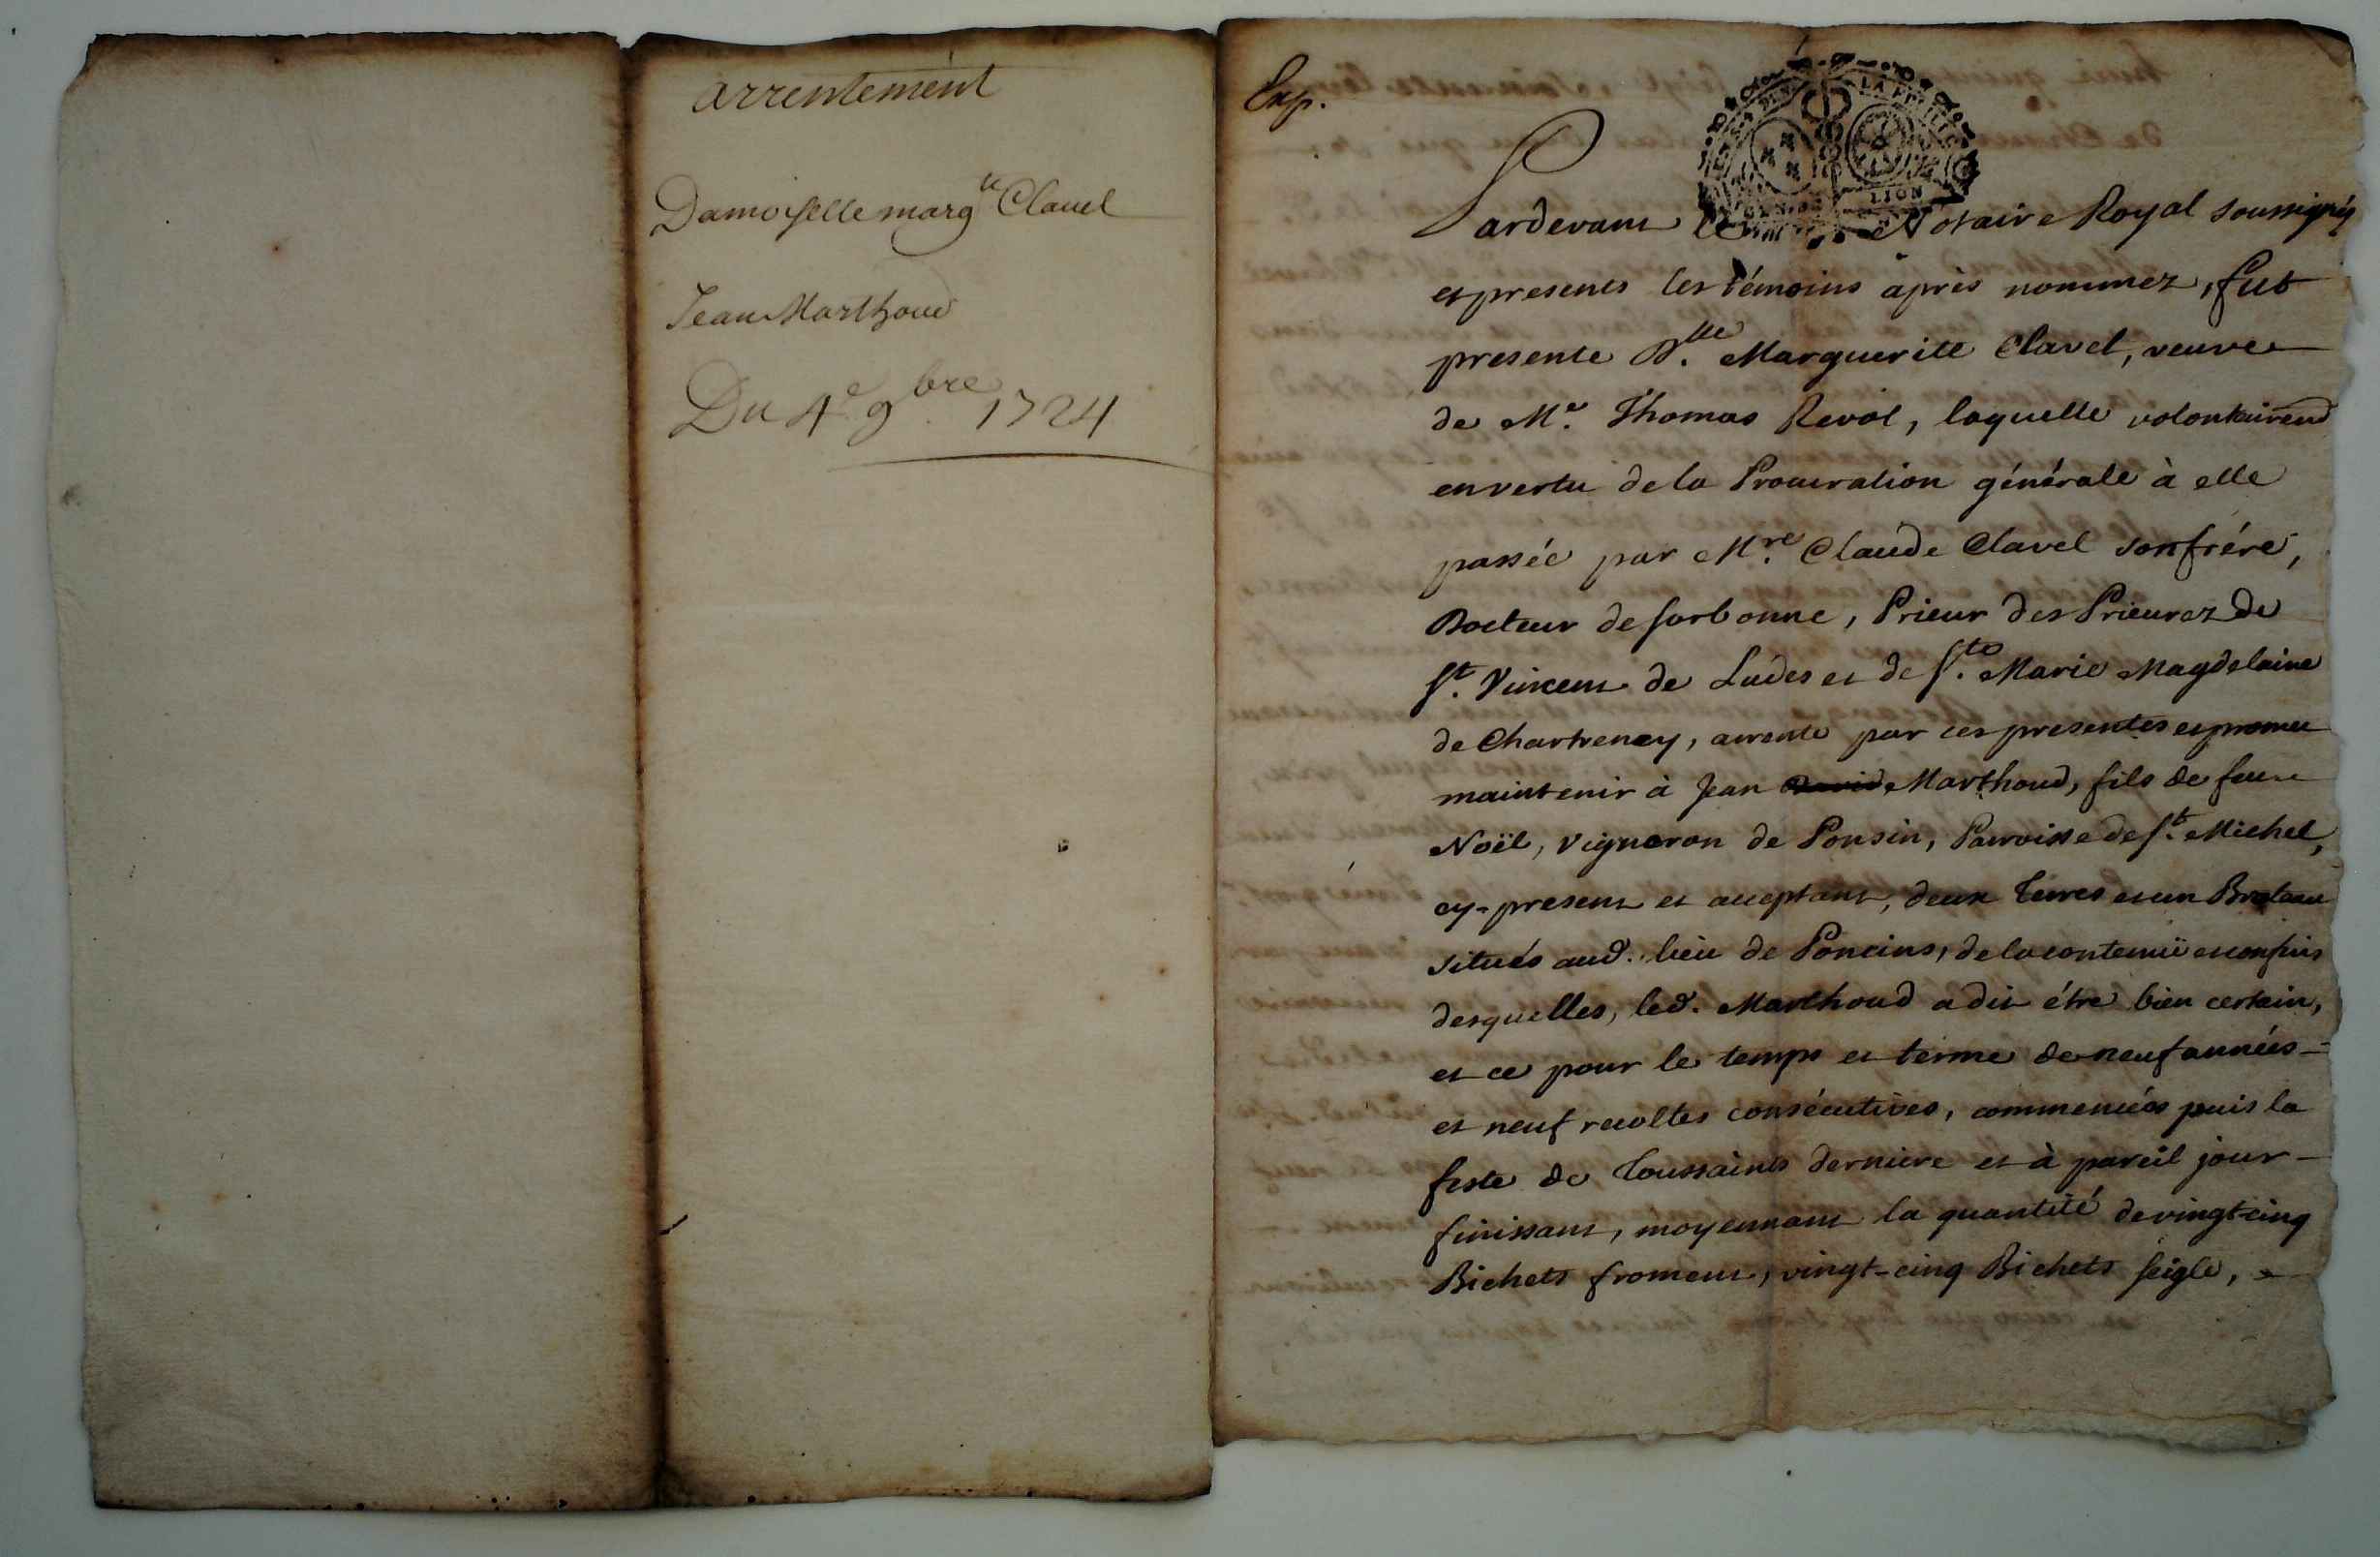 arrentement
Damoiselle marg^te Clavel
Jean Marthoud
Du 4^e 9^bre. 1724
Exp.
LION
Pardevant le Notaire Royal soussigné,
et presents les témoins après nommez, fut
presente D^lle. Marguerite Clavel, veuve
de M^e. Thomas Revol, laquelle volontairem^t
en vertu de la Procuration générale à elle
passée par M^re. Claude Clavel son frére,
Docteur de Sorbonne, Prieur des Prieurez de
S^t. Vincent de Ludes et de S^te. Marie Magdelaine
de Chartreney, arrente par ces presentes et promet
maintenir à Jean Marthoud, fils de feu
Noël, Vigneron de Ponsin, Parroisse de S^t. Michel,
cy-present et acceptant, deux terres et un Broteau
situés aud. lieu de Poncins, de la contenuë et confins
desquelles, led. Marthoud a dit étre bien certain,
et ce pour le temps et terme de neuf années
et neuf recoltes consécutives, commencées puis la
feste de Toussaints derniere et à pareil jour
finissant, moyennant la quantité de vingt-cinq
Bichets froment, vingt-cinq Bichets seigle,